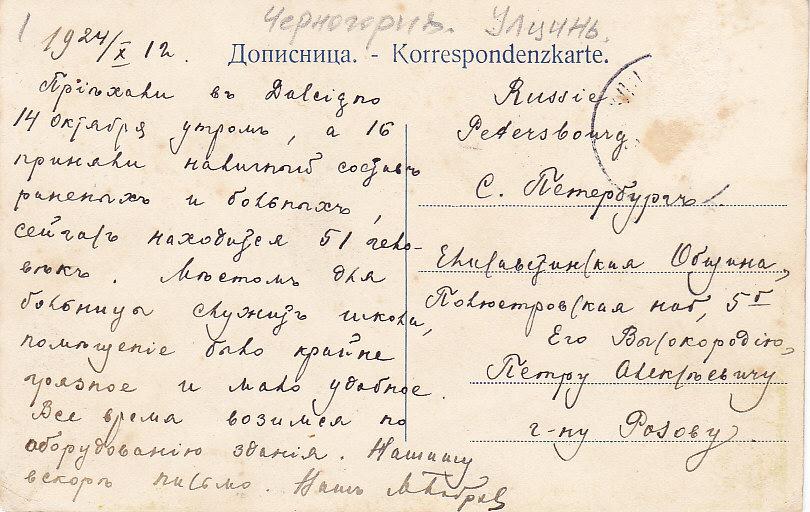 Черногория. Улцинь.
19 24/X 12.
Дописница. - Korrespondenzkarte.
Пріѣхали въ Dulcigno
14 Октября утромъ, а 16
приняли наличный составъ
раненыхъ и больныхъ,
сейчасъ находится 51 чело-
вѣкъ. Мѣстомъ для
больницы служитъ школа,
помѣщеніе было крайне
грязное и мало удобное.
Все время возимся по
оборудованію зданія. Напишу
вскорѣ письмо. Нашъ
Russie
Petersbourg.
С. Петербургъ.
Елисаветинская Община,
Полюстровская наб, 5б
Его Высокородію,
Петру Алексѣевичу
г-ну Розову.